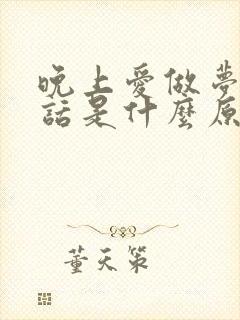 晚上愛做夢
話是什麼原
董天策